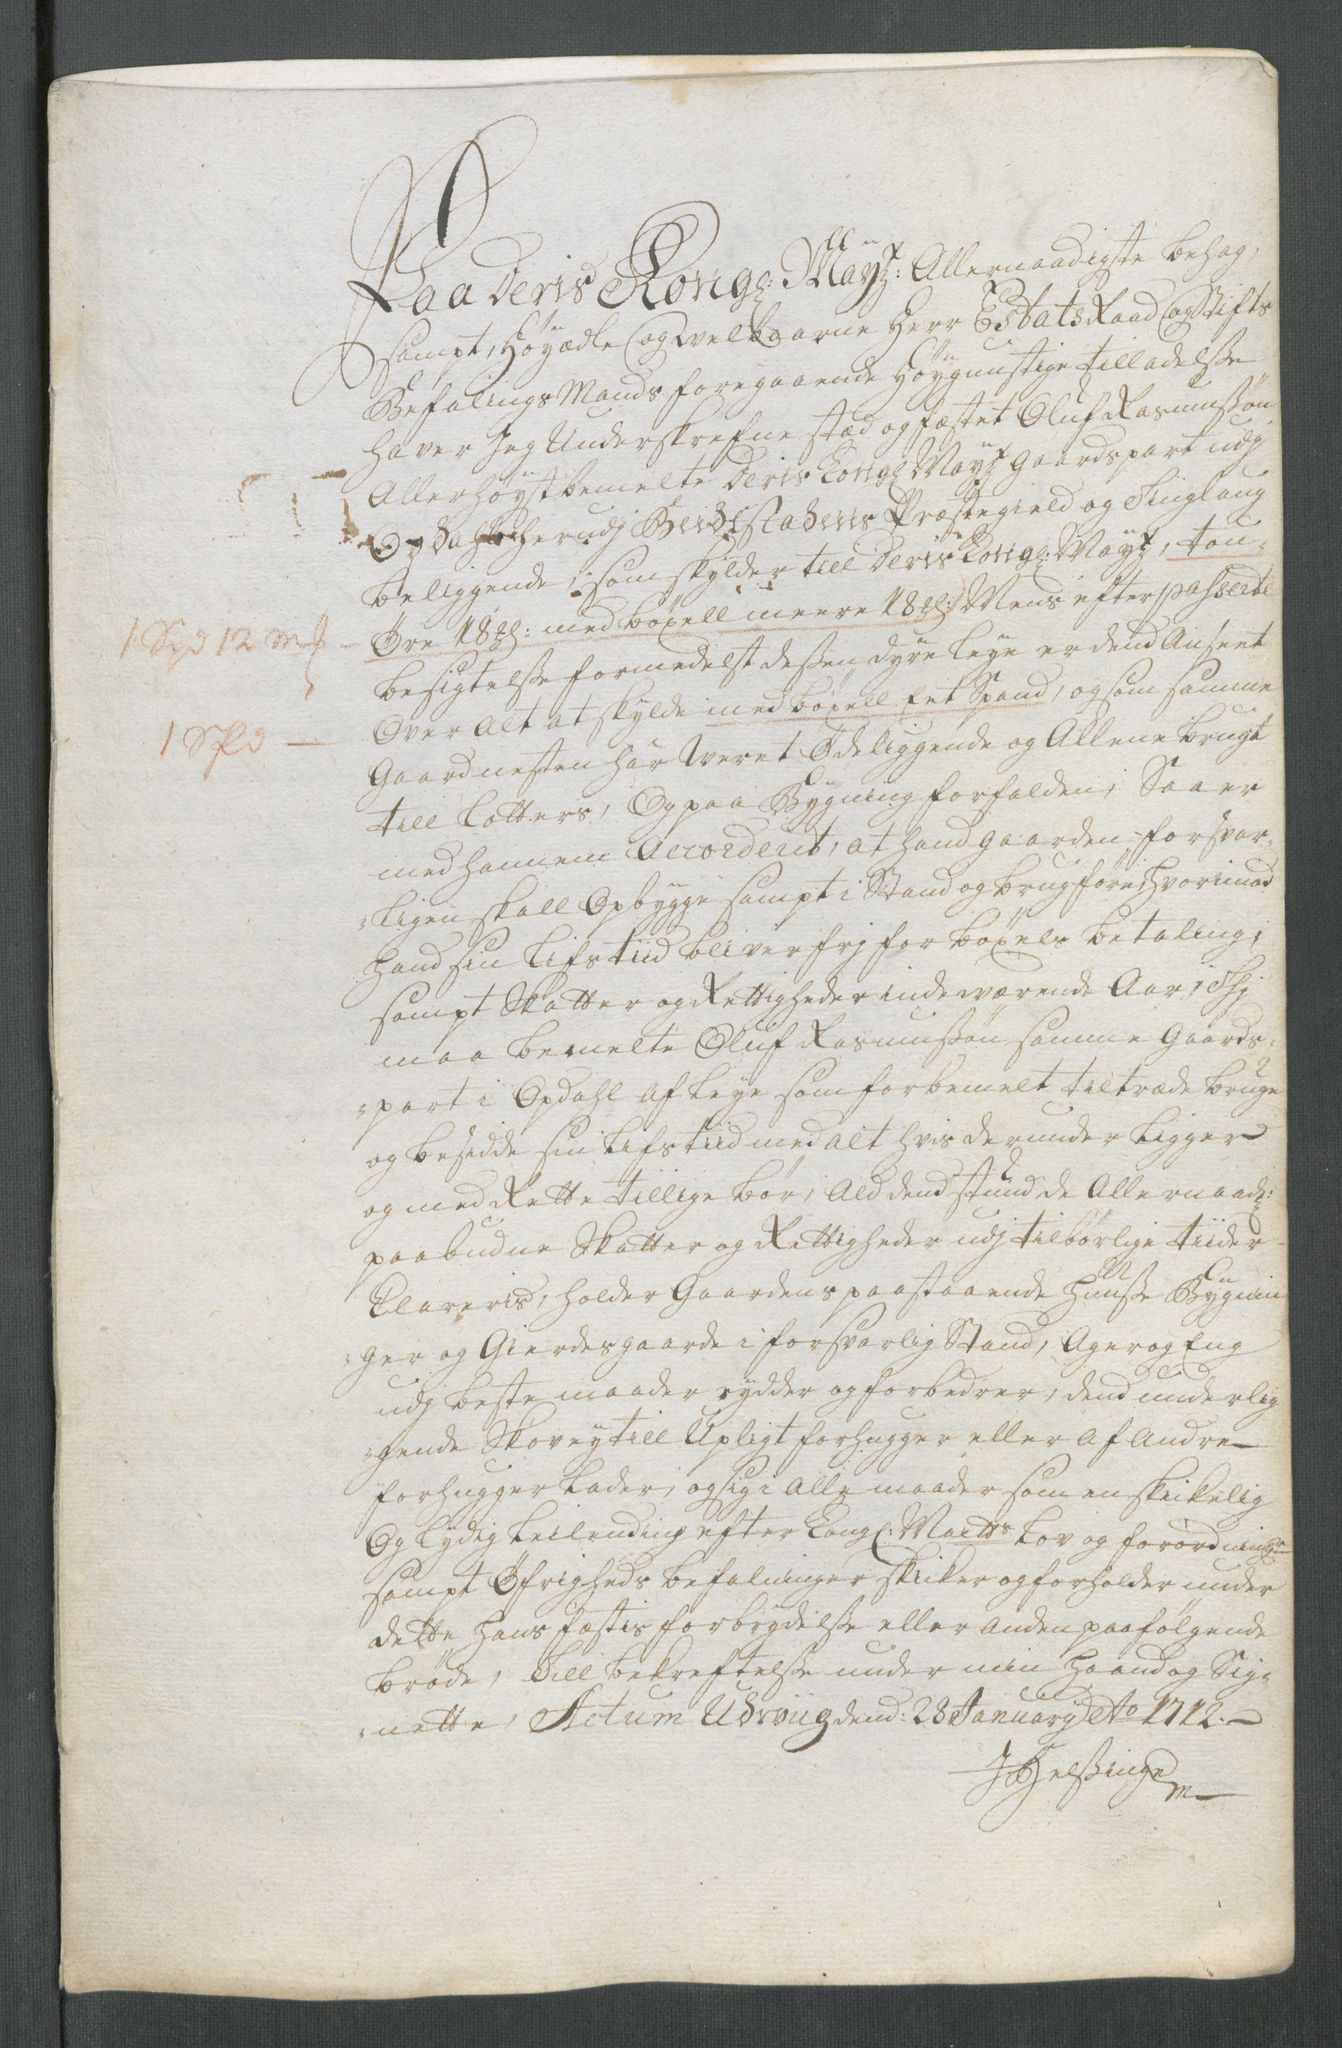 Paa Deris Kongl: Mayts: Allernaadigste behag,
sampt, Höyædle og Welbaarne Herr EstatsRaad og Stifts
Befalings Mands foregaaende Höygunstige tilladelsse
haver Jeg Underskrefne stæd og fæstet Oluf Rasmussön
Allerhöystbemelte Deris Kongl Mayts gaardspart udj
Opdahl her udj Beidestadens Præstegield og Tinglaug
beliggende, som skylder till Deris Kongl: Mayts, tou
Öre 18 : med böxell meere 18 : Mens efter passerte
1 Spd 12 mk
besigtelsse formedelst dessen dyre leye er dend Anseet
Over alt at skylde med böxell Eet Spand, og som samme
1 Spd
Gaard nesten har Weret Ödeliggende og Allene brugt
till Lotters, Og paa Bygning forfalden, Saa er
med hannem Accorderit, at hand gaarden forsvar-
ligen skall Opbygge sampt i Stand og brug före, Hvorimod
hand sin Lifstiid bliver frj for böxels betaling,
sampt Skatter og Rettigheder indeværende Aar, Thj
maa bemelte Oluf Rasmussön samme Gaards-
part i Opdahl Af leye som forbemelt tiltræde bruge
og besidde sin Lifstiid med alt hvis derunder ligger
og med Rette tillige bör, Ald dend stund de Allernaad:
paabudne Skatter og Rettigheder udj tilbörlige tiider
Clareris, holder Gaardens paastaaende Huusse Bygnin
ger og Gierdesgaarde i forsvarlig Stand, Ager og Eng
udj beste maader rydder og forbedrer, dend underlig
gende Skov ey till Upligt forhugger eller Af Andre
forhugger lader, og sig i Alle maader som en skikelig
Og lydig leilending efter Kongl: Maitts Lov og forordninger
sampt Öfrigheds befalninger skiker og forholder under
dette hans fæstis forbrydelsse eller Anden paafölgende
bröde, Till bekreftelsse under min Haand og Sig-
nette, Actum Udvüig dend: 28 Januarij Ao 1712.
J Helssinge